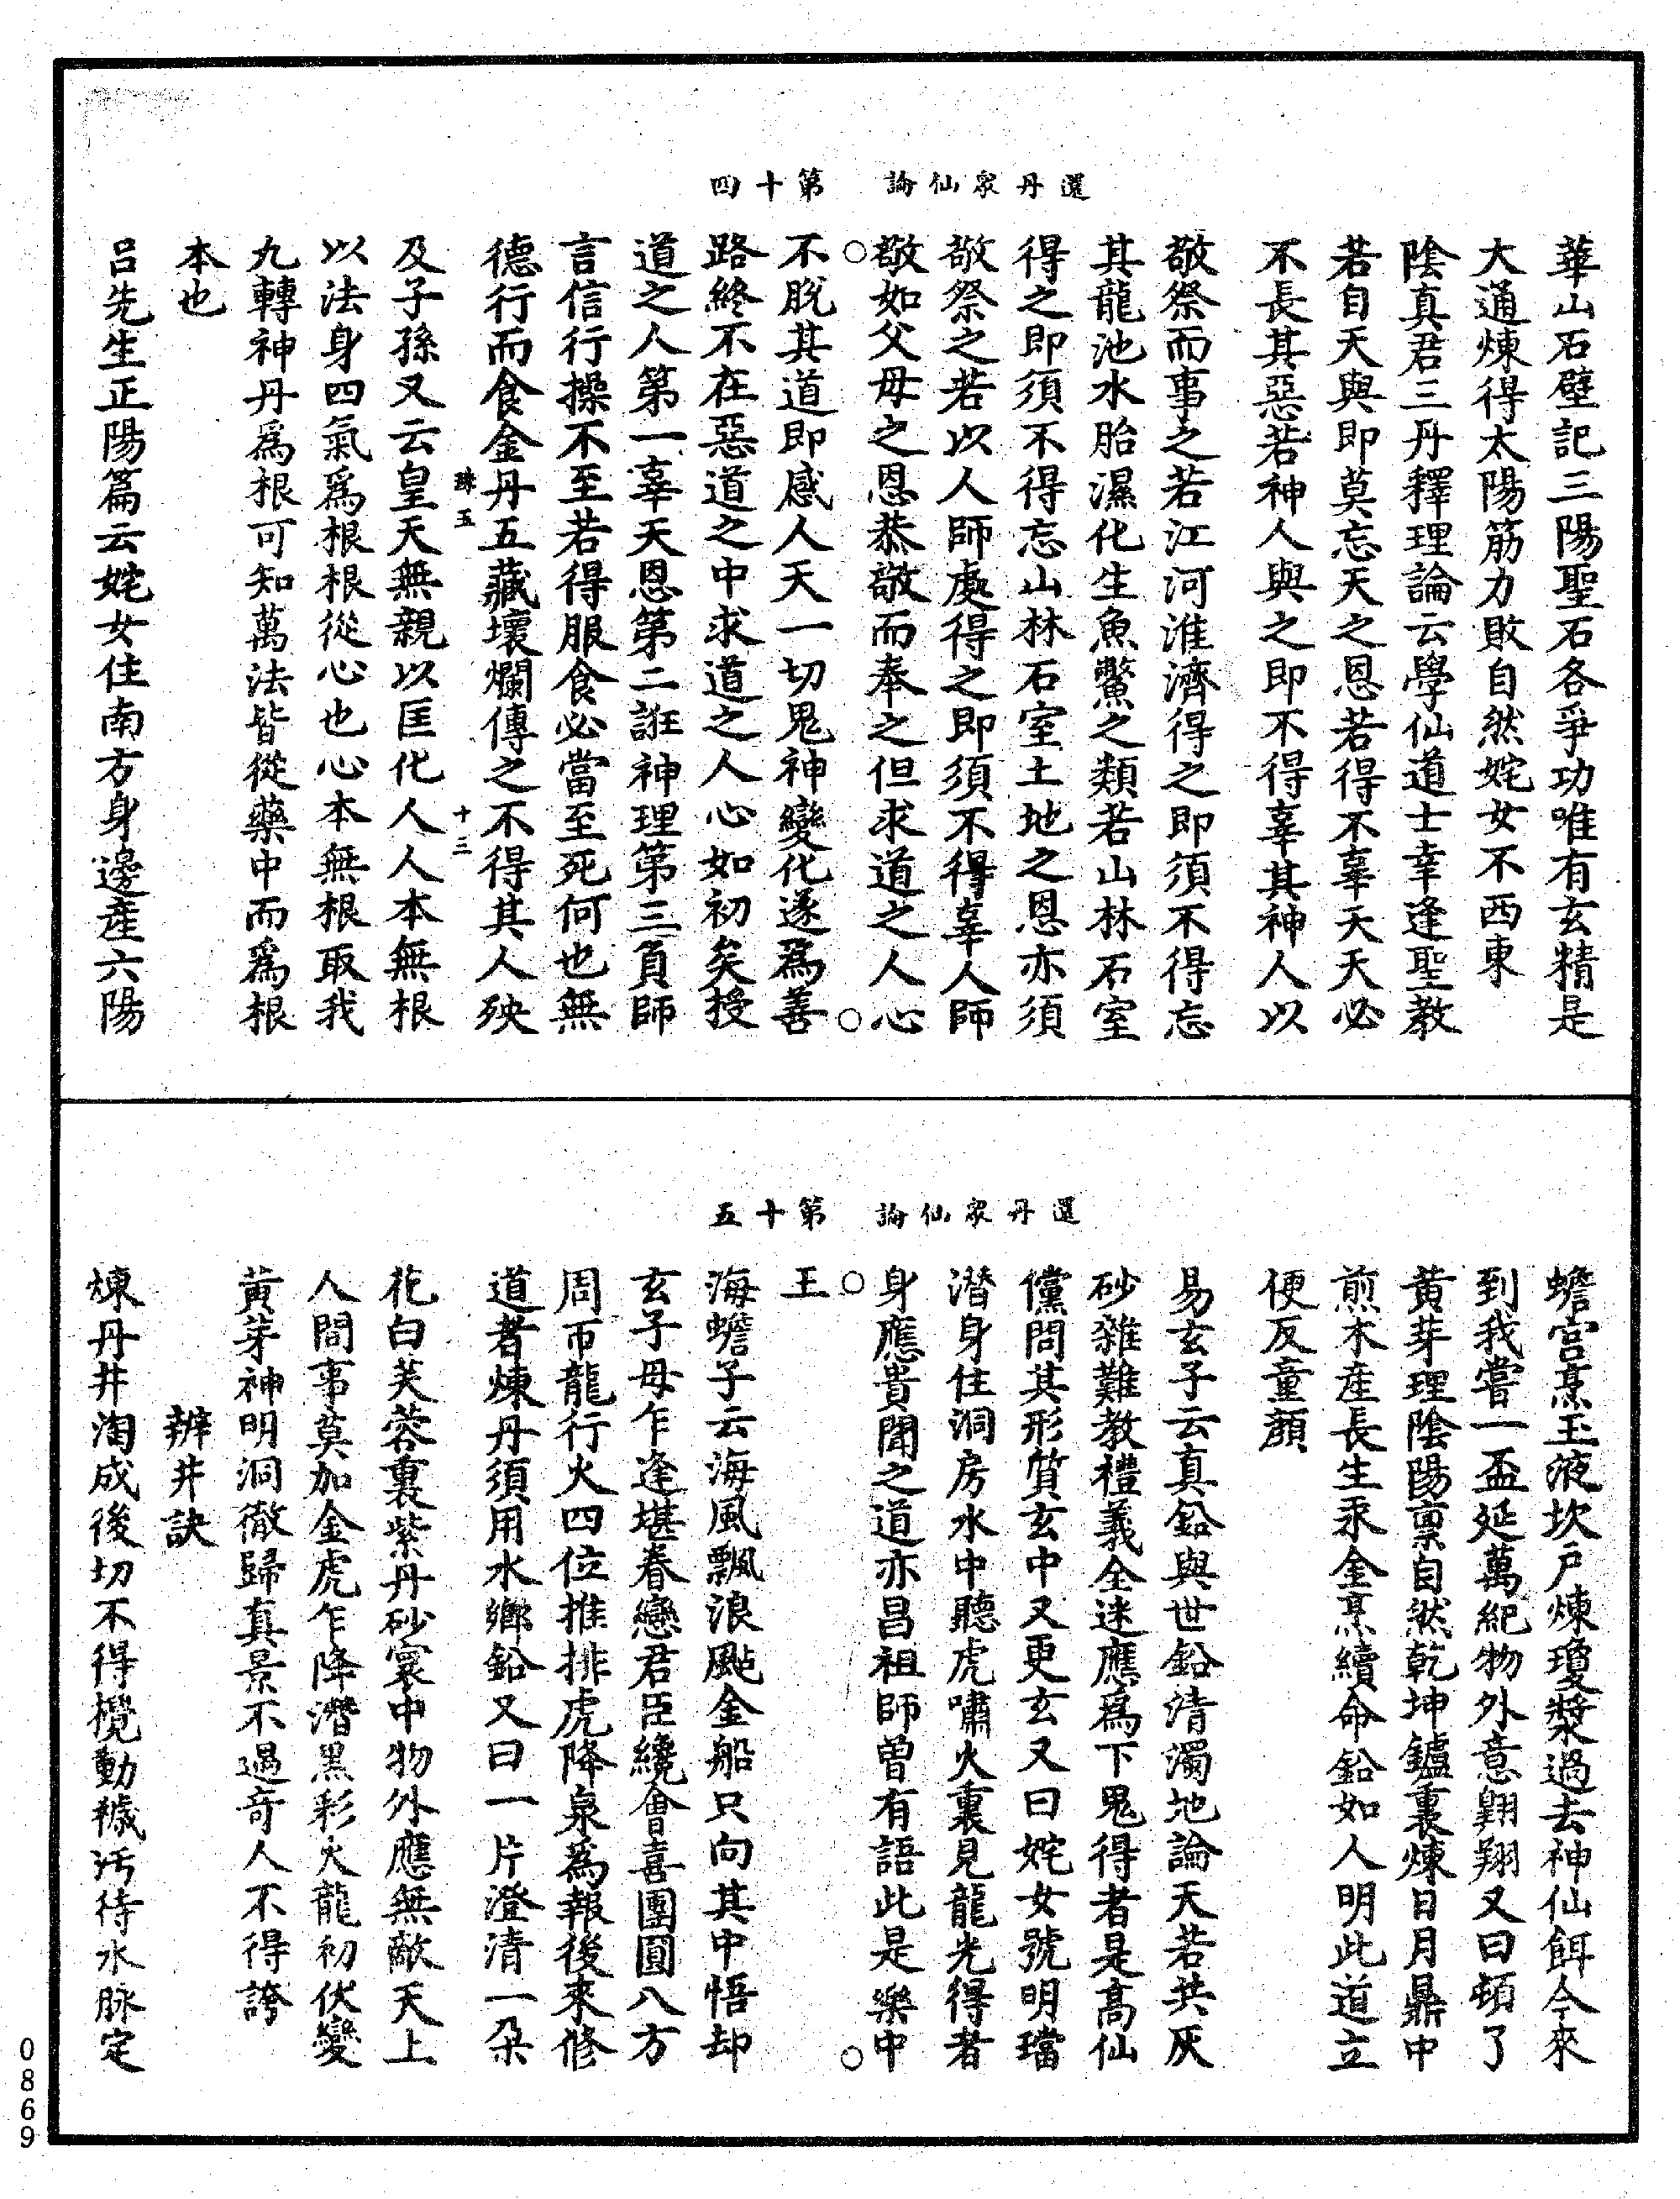 還丹眾仙論　第十四
華山石壁記三陽聖石各爭功唯有玄精是
大通煉得太陽筋力敗自然姹女不西東
陰真君三丹釋理論云學仙道士幸逢聖教
若自天與即莫忘天之恩若得不辜天天必
不長其惡若神人與之即不得辜其神人以
敬祭而事之若江河淮濟得之即須不得忘
其龍池水胎濕化生魚鱉之類若山林石室
得之即須不得忘山林石室土地之恩亦須
敬祭之若以人師處得之即須不得辜人師
敬如父母之恩恭敬而奉之但求道之人心
不脫其道即感人天一切鬼神變化遂為善
路終不在惡道之中求道之人心如初矣授
道之人第一辜天恩第二誑神理第三負師
言信行操不至若得服食必當至死何也無
德行而食金丹五藏壞爛傳之不得其人殃
珠五　十三
及子孫又云皇天無親以匡化人人本無根
以法身四氣為根根從心也心本無根取我
九轉神丹為根可知萬法皆從藥中而為根
本也
呂先生正陽篇云姹女住南方身邊產六陽
還丹眾仙論　第十五
蟾宮烹玉液坎戶煉瓊漿過去神仙餌今來
到我嘗一盃延萬紀物外意翱翔又曰頓了
黃芽理陰陽稟自然乾坤鑪裏煉日月鼎中
煎木產長生汞金烹續命鉛如人明此道立
便反童顏
易玄子云真鉛與世鉛清濁地論天若共灰
砂雜難教禮義全迷應為下鬼得者是高仙
儻問其形質玄中又更玄又曰姹女號明璫
潛身住洞房水中聽虎嘯火裏見龍光得者
身應貴聞之道亦昌祖師曾有語此是藥中
王
海蟾子云海風飄浪颭金船只向其中悟却
玄子母乍逢堪眷戀君臣纔會喜團圓八方
周帀龍行火四位推排虎降泉為報後來修
道者煉丹須用水鄉鉛又曰一片澄清一朵
花白芙蓉裏紫丹砂寰中物外應無敵天上
人間事莫加金虎乍降潛黑彩火龍初伏變
黃芽神明洞徹歸真景不遇奇人不得誇
辨井訣
煉丹井淘成後切不得攪動穢污待水脉定
0869